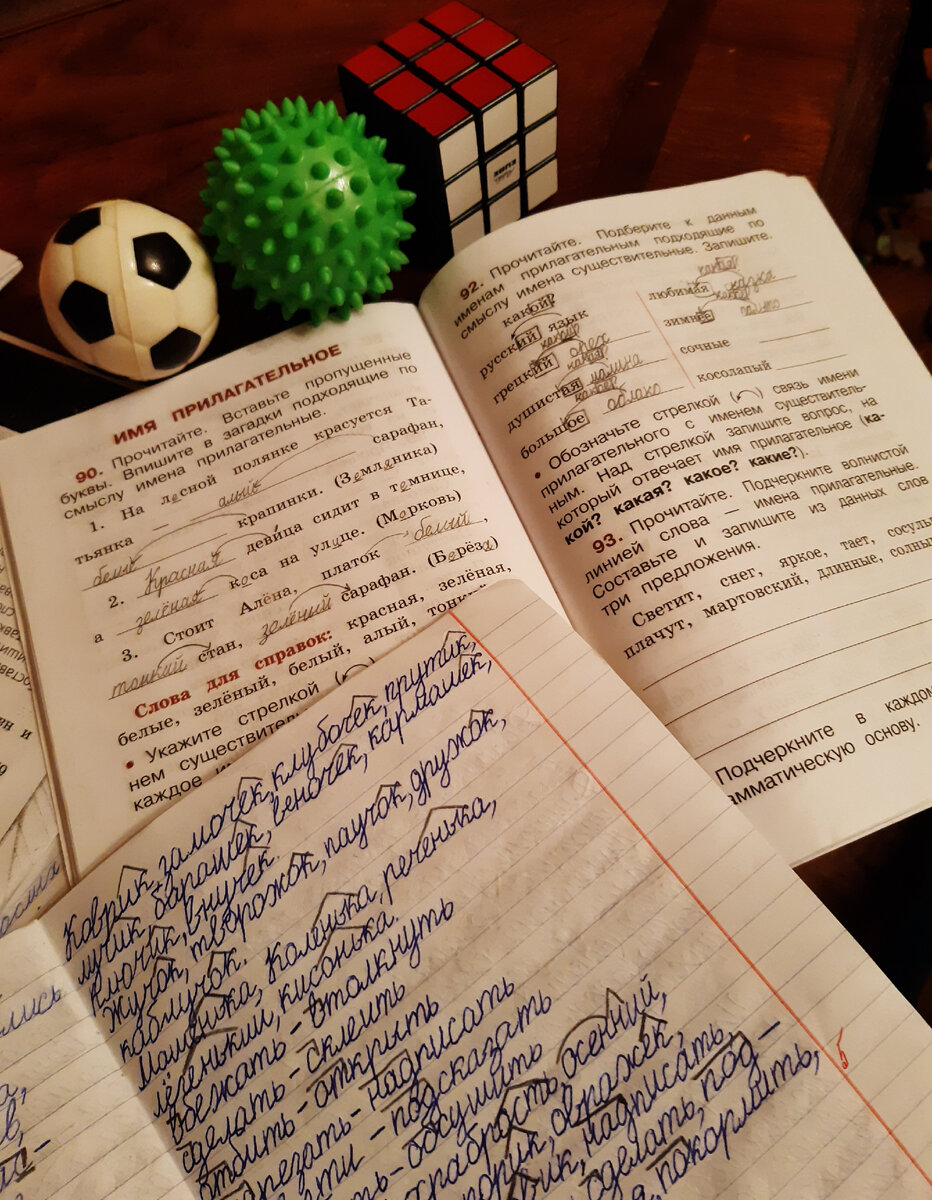 ИМЯ ПРИЛАГАТЕЛЬНОЕ
90. Прочитайте. Вставьте пропущенные
буквы. Впишите в загадки подходящие по
смыслу имена прилагательные.
1. На лесной полянке красуется Та-
тьянка алый сарафан,
белые крапинки. (Земляника)
2. Красная девица сидит в темнице,
а зелёная коса на улице. (Морковь)
3. Стоит Алёна, платок белый,
тонкий стан, зелёный сарафан. (Берёза)
Слова для справок: красная, зелёная,
белые, зелёный, белый, алый,
• Укажите стрелкой
нем существител
каждое
92. Прочитайте. Подберите к данным
именам прилагательным подходящие по
смыслу имена существительные. Запишите.
какой?
русский язык
грецкий орех
душистая
большое облако
любимая
зимнее
сочные
косолапый
• Обозначьте стрелкой связь имени
прилагательного с именем существитель-
ным. Над стрелкой запишите вопрос, на
который отвечает имя прилагательное (ка-
кой? какая? какое? какие?).
93. Прочитайте. Подчеркните волнистой
линией слова — имена прилагательные.
Составьте и запишите из данных слов
три предложения.
Светит, снег, яркое, тает,
плачут, мартовский, длинные,
Подчеркните в каждом
амматическую основу.
Коврик, замочек, клубочек, прутик,
лучик, барашек, веночек, кармашек,
ключик, внучек.
Жучок, творожок, паучок, дружок,
каблучок.
Маменька, коленька, реченька,
лёгенький, кисонька.
вбежать - втолкнуть
сделать - склеить
отбить - открыть
резать - надписать
ти - подсказать
ть - обсушить
храбрость, осенний,
орик, овражек,
вик, надписать,
оделать, под-
покормить,